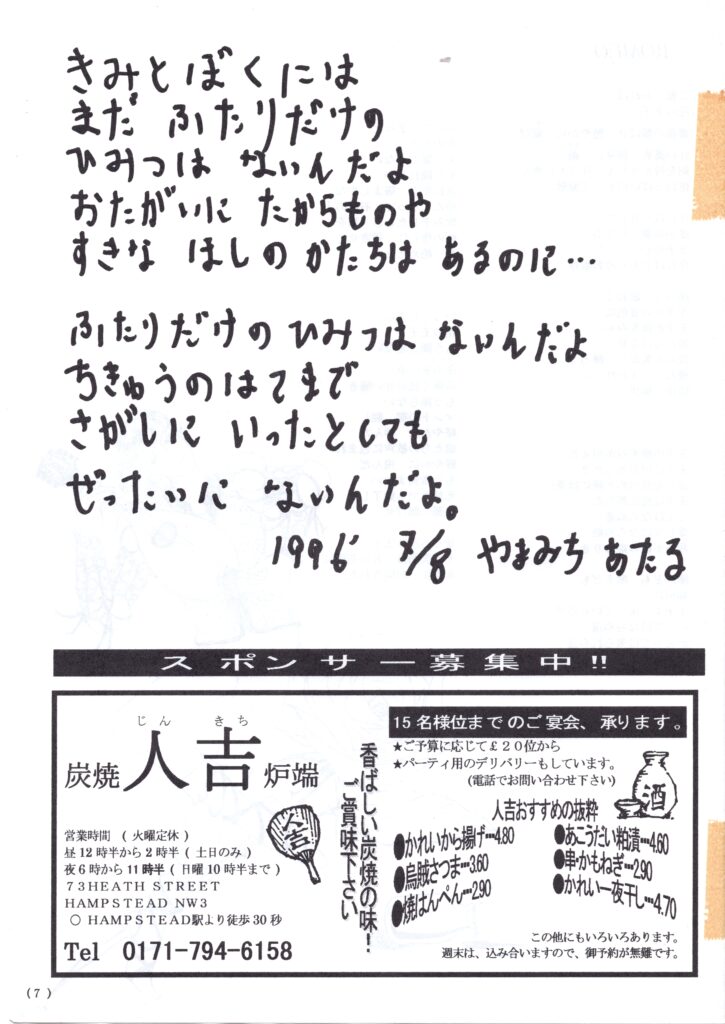 きみとぼくには
まだ ふたりだけの
ひみつは ないんだよ
おたがいに たからものや
すきな ほしの かたちは あるのに…
ふたりだけの ひみつは ないんだよ
ちきゅうのはてまで
さがしに いったとしても
ぜったいに ないんだよ。
1996 7/8 やまみち あたる
スポンサー募集中!!
じん きち
炭焼 人吉 炉端
営業時間 (火曜定休)
昼12時半から2時半(土日のみ)
夜6時から11時半(日曜10時半まで)
73HEATH STREET
HAMPSTEAD NW3
○HAMPSTEAD駅より徒歩30秒
Tel 0171-794-6158
人吉
香ばしい炭焼の味!
ご賞味下さい
15名様位までのご宴会、承ります。
★ご予算に応じて£20位から
★パーティ用のデリバリーもしています。
(電話でお問い合わせ下さい)
酒
人吉おすすめの抜粋
●かれいから揚げ…4.80
●烏賊さつま…3.60
●焼はんぺん…2.90
●あこうだい粕漬…4.60
●串・かもねぎ…2.90
●かれい一夜干し…4.70
この他にもいろいろあります。
週末は、込み合いますので、御予約が無難です。
(7)